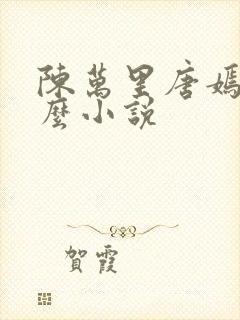 陳萬里唐嫣
麼小說
賀霞